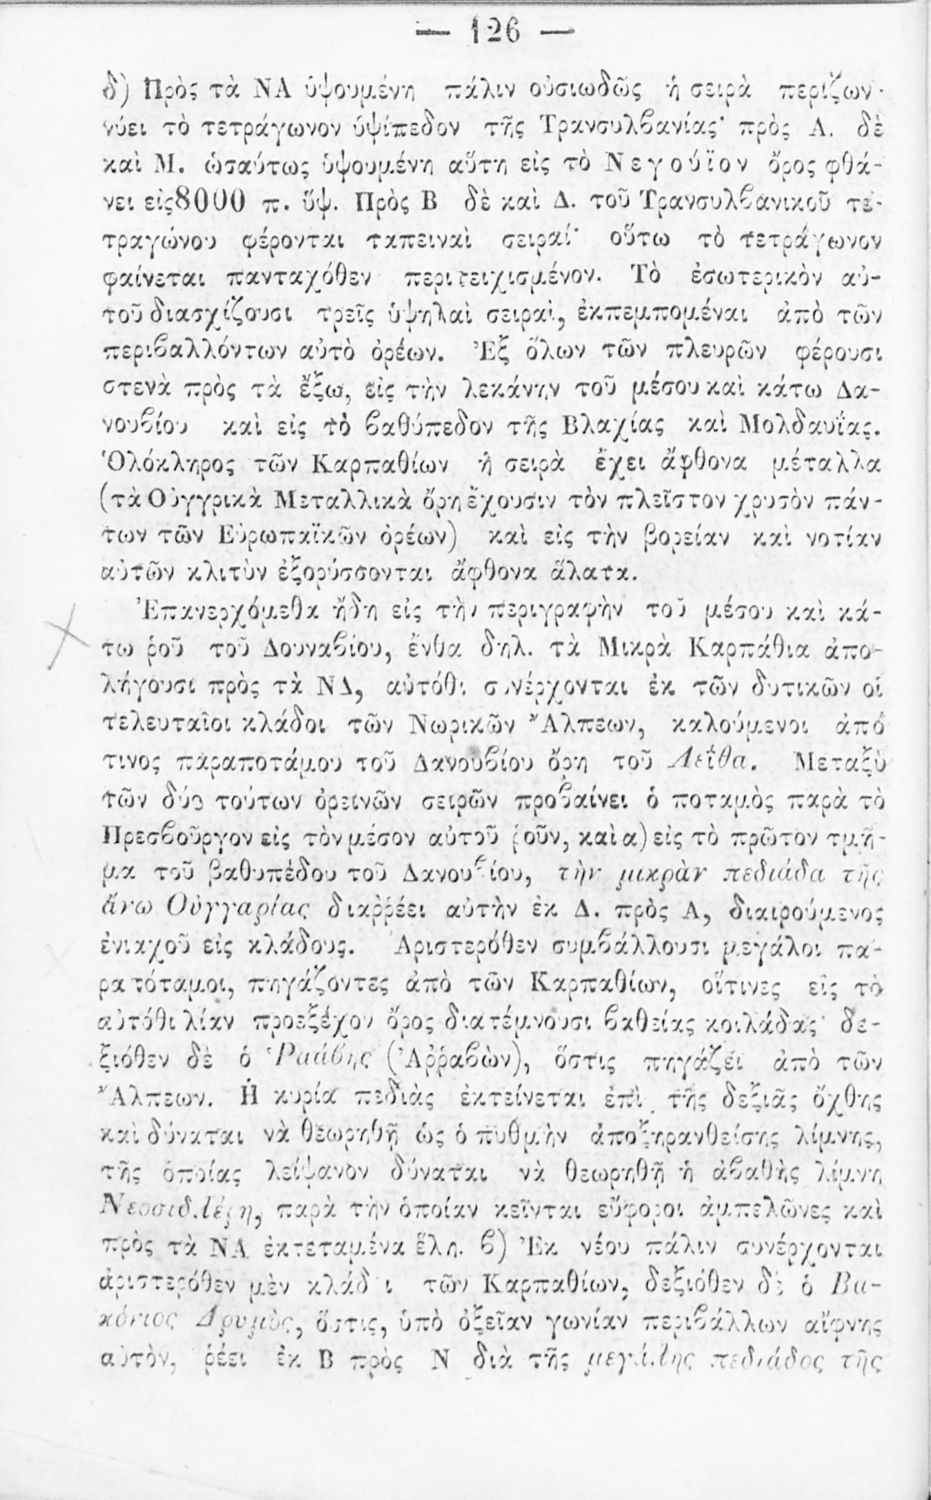 — 126 —
δ) Πρὸς τὰ ΝΑ ὑψουμένη πάλιν οὐσιωδῶς ἡ σειρὰ περιζων-
νύει τὸ τετράγωνον ὑψίπεδον τῆς Τρανσυλβανίας· πρὸς Α. δὲ
καὶ Μ. ὡσαύτως ὑψουμένη αὕτη εἰς τὸ Νεγούϊον ὄρος φθά-
νει εἰς 8000 π. ὕψ. Πρὸς Β δὲ καὶ Δ. τοῦ Τρανσυλβανικοῦ τε-
τραγώνου φέρονται ταπειναὶ σειραί· οὕτω τὸ τετράγωνον
φαίνεται πανταχόθεν περιτειχισμένον. Τὸ ἐσωτερικὸν αὐ-
τοῦ διασχίζουσι τρεῖς ὑψηλαὶ σειραί, ἐκπεμπομέναι ἀπὸ τῶν
περιβαλλόντων αὐτὸ ὀρέων. Ἐξ ὅλων τῶν πλευρῶν φέρουσι
στενὰ πρὸς τὰ ἔξω, εἰς τὴν λεκάνην τοῦ μέσου καὶ κάτω Δα-
νουβίου καὶ εἰς τὸ βαθύπεδον τῆς Βλαχίας καὶ Μολδαυΐας.
Ὁλόκληρος τῶν Καρπαθίων ἡ σειρὰ ἔχει ἄφθονα μέταλλα
(τὰ Οὑγγρικὰ Μεταλλικὰ ὄρη ἔχουσιν τὸν πλεῖστον χρυσὸν πάν-
των τῶν Εὐρωπαϊκῶν ὀρέων) καὶ εἰς τὴν βορείαν καὶ νοτίαν
αὐτῶν κλιτὺν ἐξορύσσονται ἄφθονα ἅλατα.
Ἐπανερχόμεθα ἤδη εἰς τὴν περιγραφὴν τοῦ μέσου καὶ κά-
τω ῥοῦ τοῦ Δουναβίου, ἔνθα δηλ. τὰ Μικρὰ Καρπάθια ἀπο-
λήγουσι πρὸς τὰ ΝΔ, αὐτόθι συνέρχονται ἐκ τῶν δυτικῶν οἱ
τελευταῖοι κλάδοι τῶν Νωρικῶν Ἄλπεων, καλούμενοι ἀπό
τινος παραποτάμου τοῦ Δανουβίου ὄρη τοῦ Λεΐθα. Μεταξὺ
τῶν δύο τούτων ὀρεινῶν σειρῶν προβαίνει ὁ ποταμὸς παρὰ τὸ
Πρεσβοῦργον εἰς τὸν μέσον αὐτοῦ ῥοῦν, καὶ α) εἰς τὸ πρῶτον τμῆ-
μα τοῦ βαθυπέδου τοῦ Δανουβίου, τὴν μικρὰν πεδιάδα τῆς
ἄνω Οὑγγαρίας διαῤῥέει αὐτὴν ἐκ Δ. πρὸς Α, διαιρούμενος
ἐνιαχοῦ εἰς κλάδους. Ἀριστερόθεν συμβάλλουσι μεγάλοι πα-
ραπόταμοι, πηγάζοντες ἀπὸ τῶν Καρπαθίων, οἵτινες εἰς τὸ
αὐτόθι λίαν προεξέχον ὄρος διατέμνουσι βαθείας κοιλάδας· δε-
ξιόθεν δὲ ὁ Ῥαάβης (Ἀῤῥαβὼν), ὅστις πηγάζει ἀπὸ τῶν
Ἄλπεων. Ἡ κυρία πεδιὰς ἐκτείνεται ἐπὶ τῆς δεξιᾶς ὄχθης
καὶ δύναται νὰ θεωρηθῇ ὡς ὁ πυθμὴν ἀποξηρανθείσης λίμνης,
τῆς ὁποίας λείψανον δύναται νὰ θεωρηθῇ ἡ ἀβαθὴς λίμνη
παρὰ τὴν ὁποίαν κεῖνται εὔφοροι ἀμπελῶνες καὶ
πρὸς τὰ ΝΑ ἐκτεταμένα ἕλη. β) Ἐκ νέου πάλιν συνέρχονται
ἀριστερόθεν μὲν κλάδοι τῶν Καρπαθίων, δεξιόθεν δὲ ὁ Βα-
κόνιος Δρυμὸς, ὅστις, ὑπὸ ὀξεῖαν γωνίαν περιβάλλων αἴφνης
αὐτὸν, ῥέει ἐκ Β πρὸς Ν διὰ τῆς μεγάλης πεδιάδος τῆς